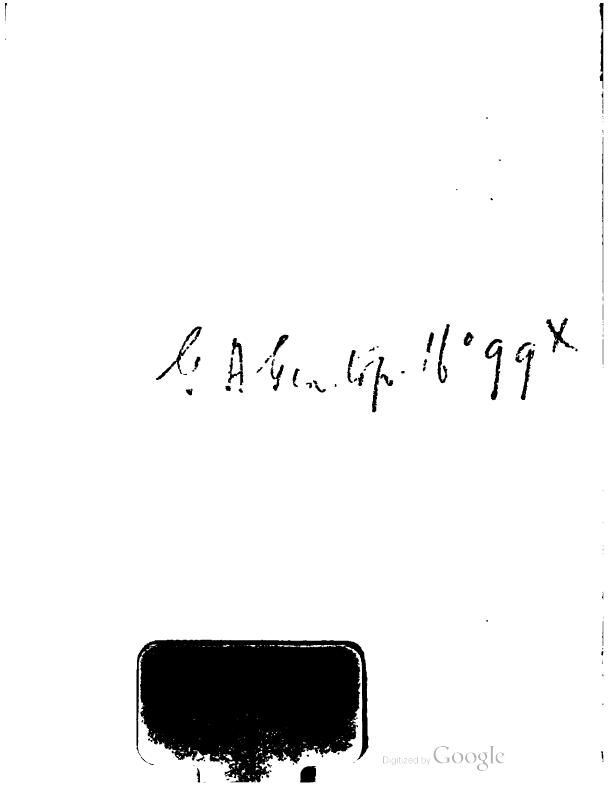 G. A. Gen. top. 16° 99ˣ
Digitized by Google